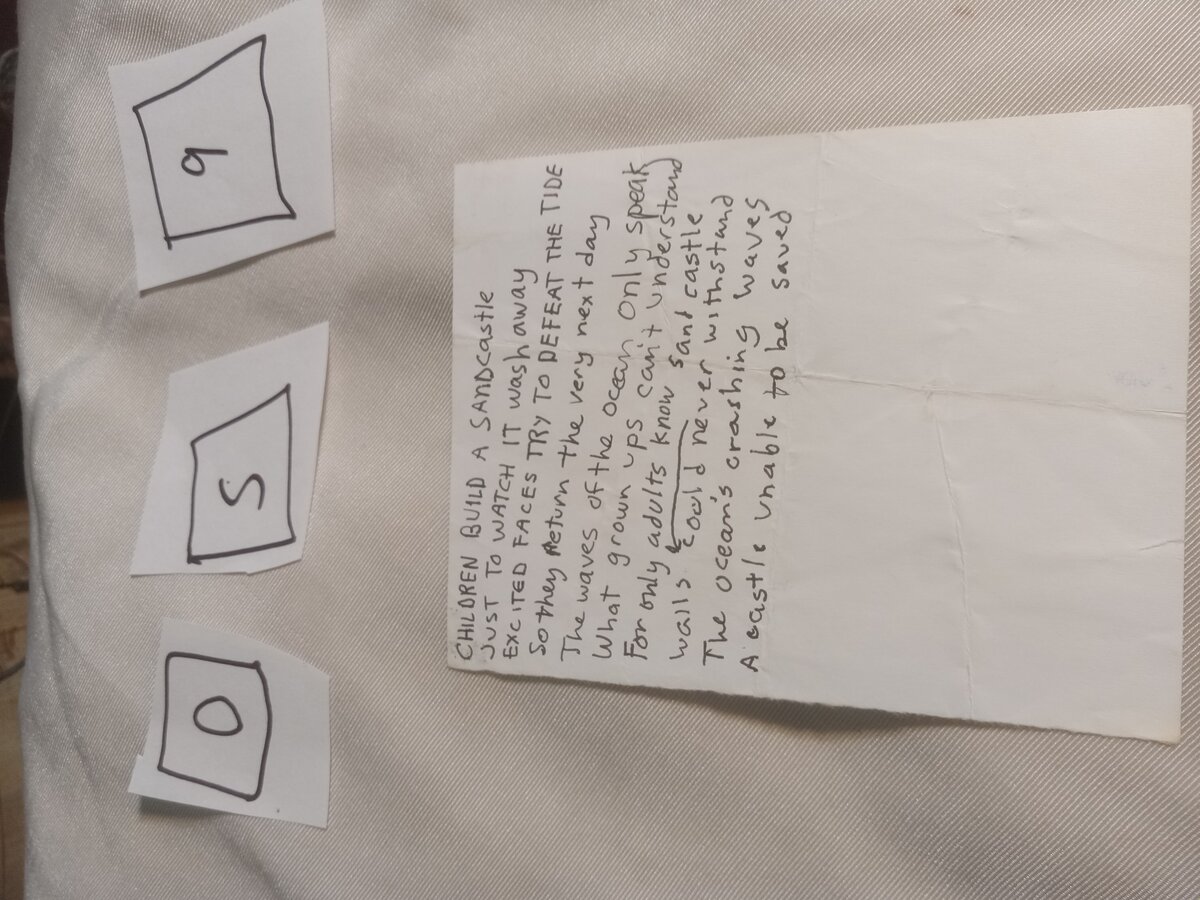 0 5 9
CHILDREN BUILD A SANDCastle
JUST TO WATCH IT wash away
EXCITED FACES TRY TO DEFEAT THE TIDE
So they Return the very next day
The waves of the ocean only speak
What grown ups can't understand
For only adults know sand castle
walls could never withstand
The ocean's crashing waves
A castle unable to be saved